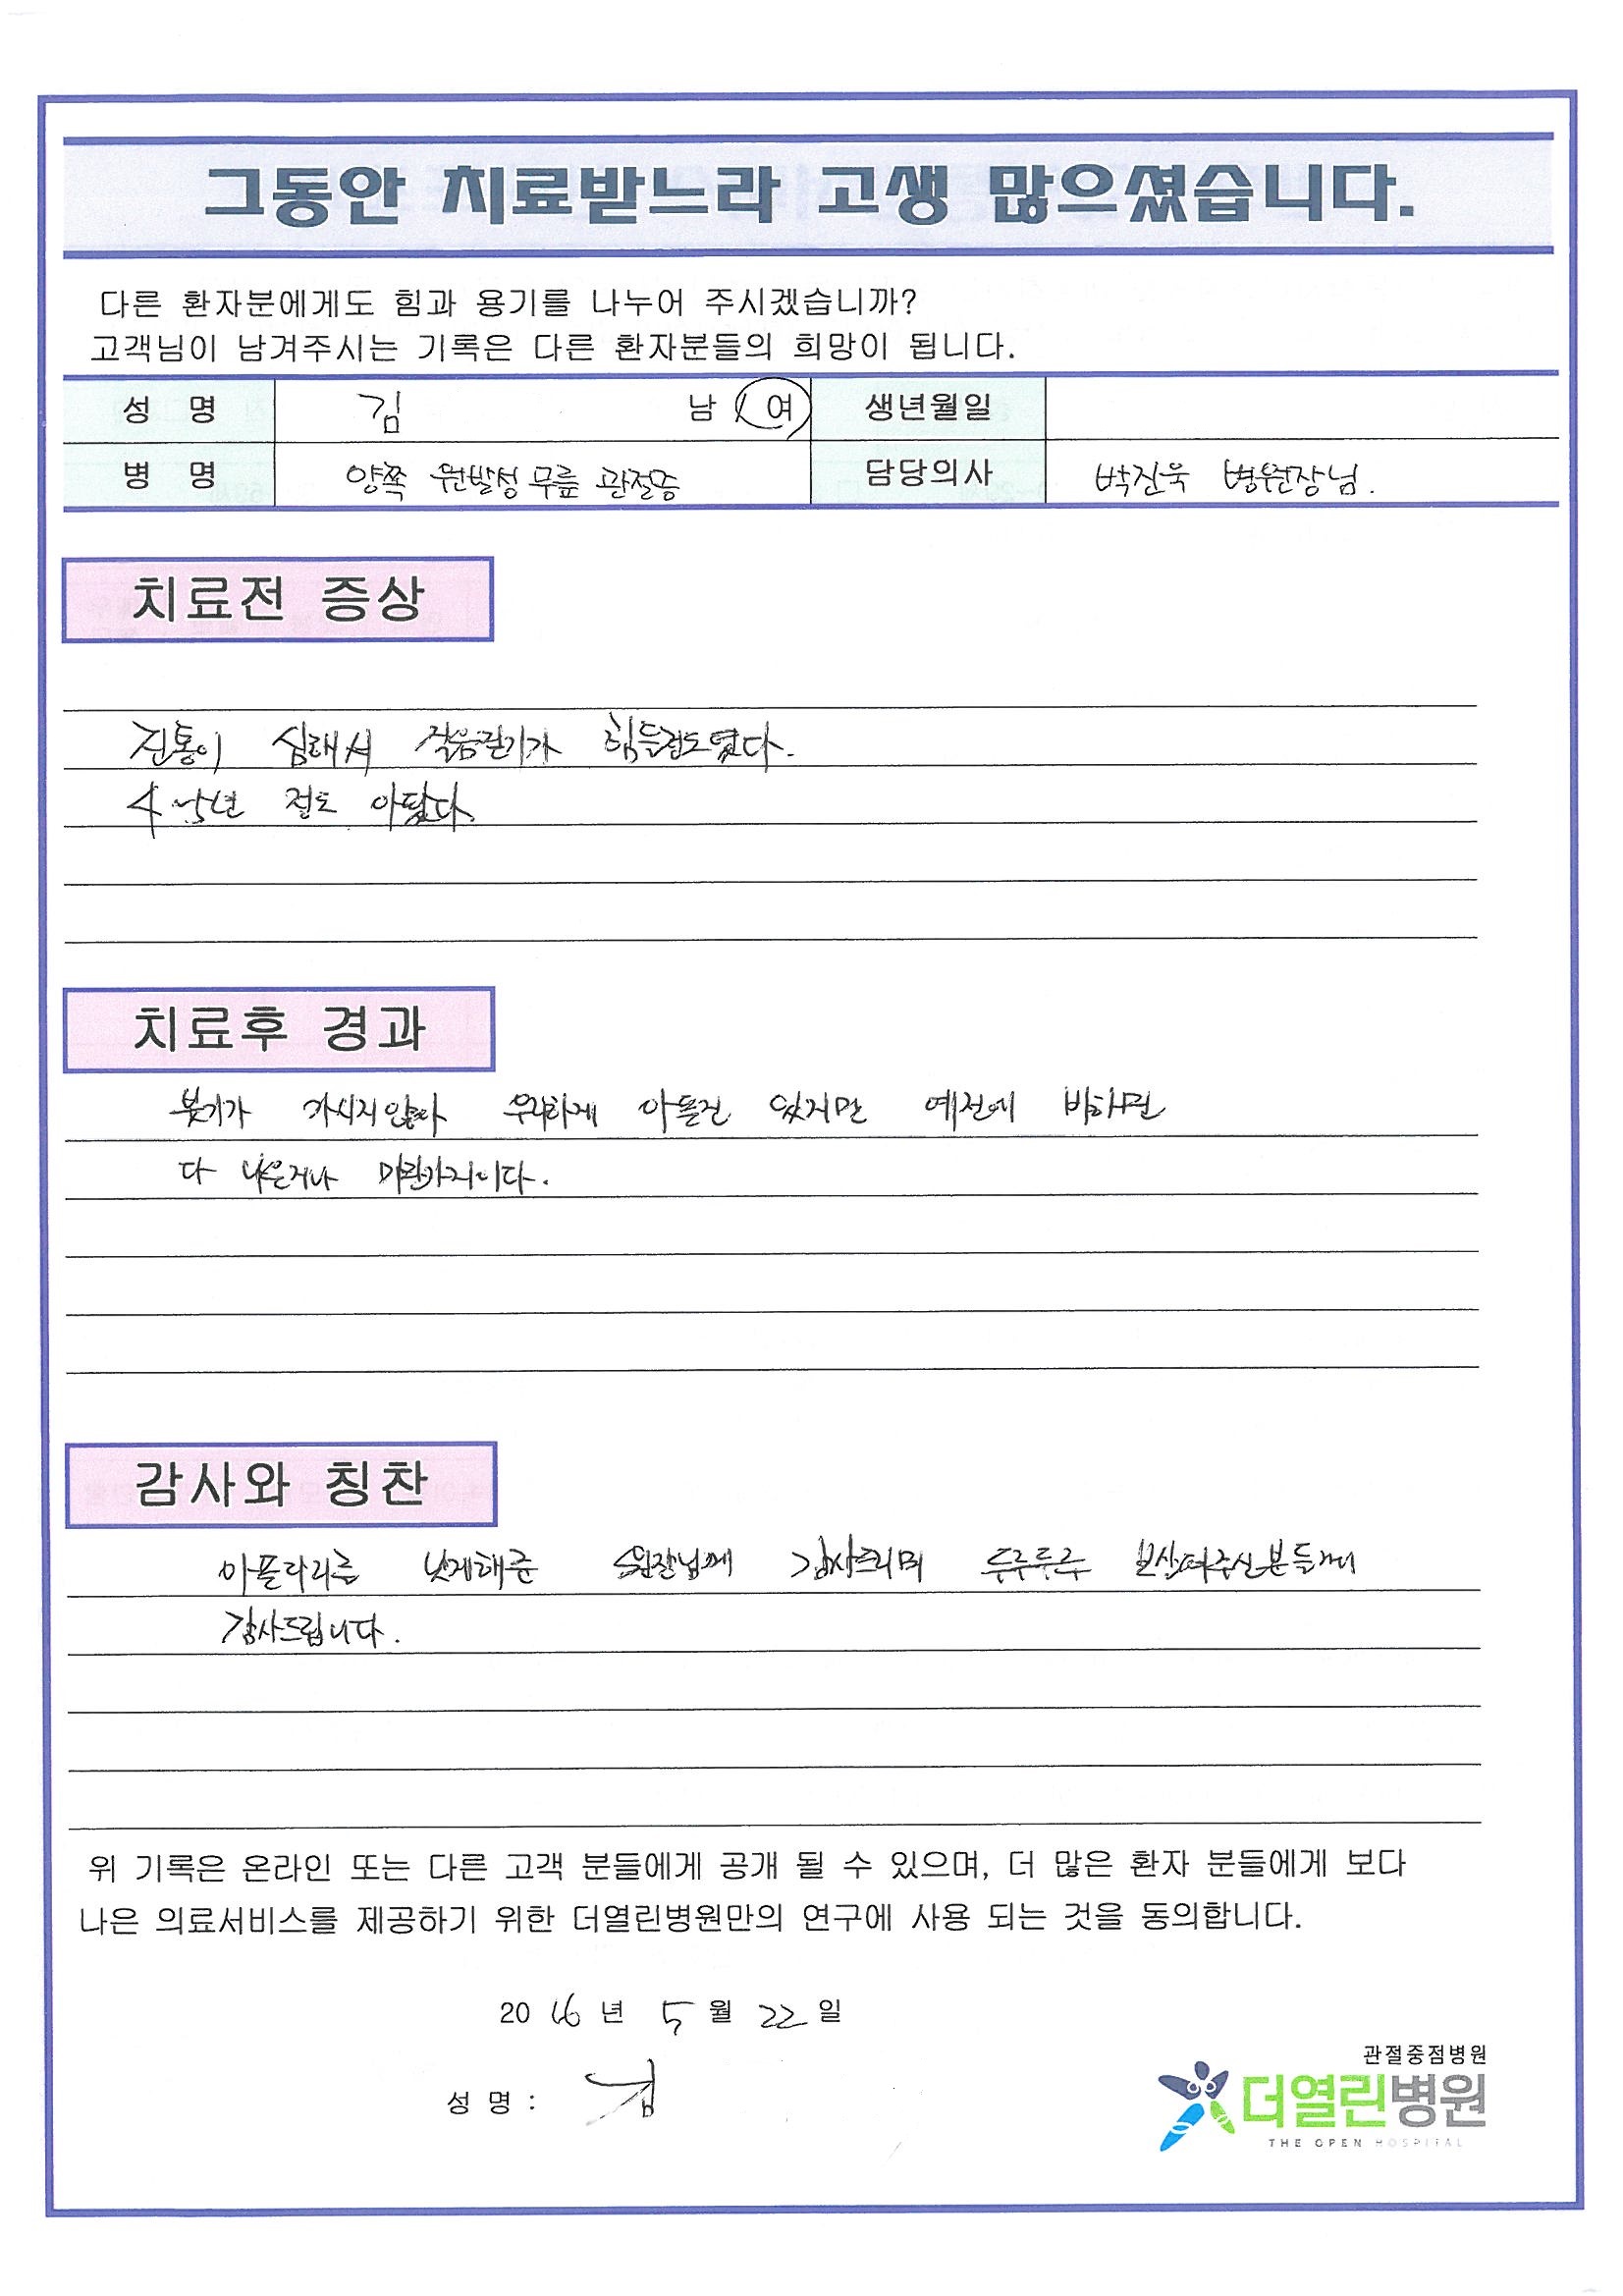 그동안 치료받느라 고생 많으셨습니다.
다른 환자분에게도 힘과 용기를 나누어 주시겠습니까?
고객님이 남겨주시는 기록은 다른 환자분들의 희망이 됩니다.
성 명 김 남 / 여 생년월일
병 명 양쪽 원발성 무릎 관절증 담당의사 박진욱 병원장님.
치료전 증상
진통이 심해서 걸음걷기가 힘들정도였다.
4~5년 정도 아팠다.
치료후 경과
붓기가 가시지않아 우리하게 아픈건 있지만 예전에 비하면
다 나은거나 마찬가지이다.
감사와 칭찬
아픈다리를 낫게해준 원장님께 감사드리며 두루두루 보살펴주신분들께
감사드립니다.
위 기록은 온라인 또는 다른 고객 분들에게 공개 될 수 있으며, 더 많은 환자 분들에게 보다
나은 의료서비스를 제공하기 위한 더열린병원만의 연구에 사용 되는 것을 동의합니다.
2016 년 5 월 22 일
성 명 : 김
관절중점병원
더열린병원
THE OPEN HOSPITAL